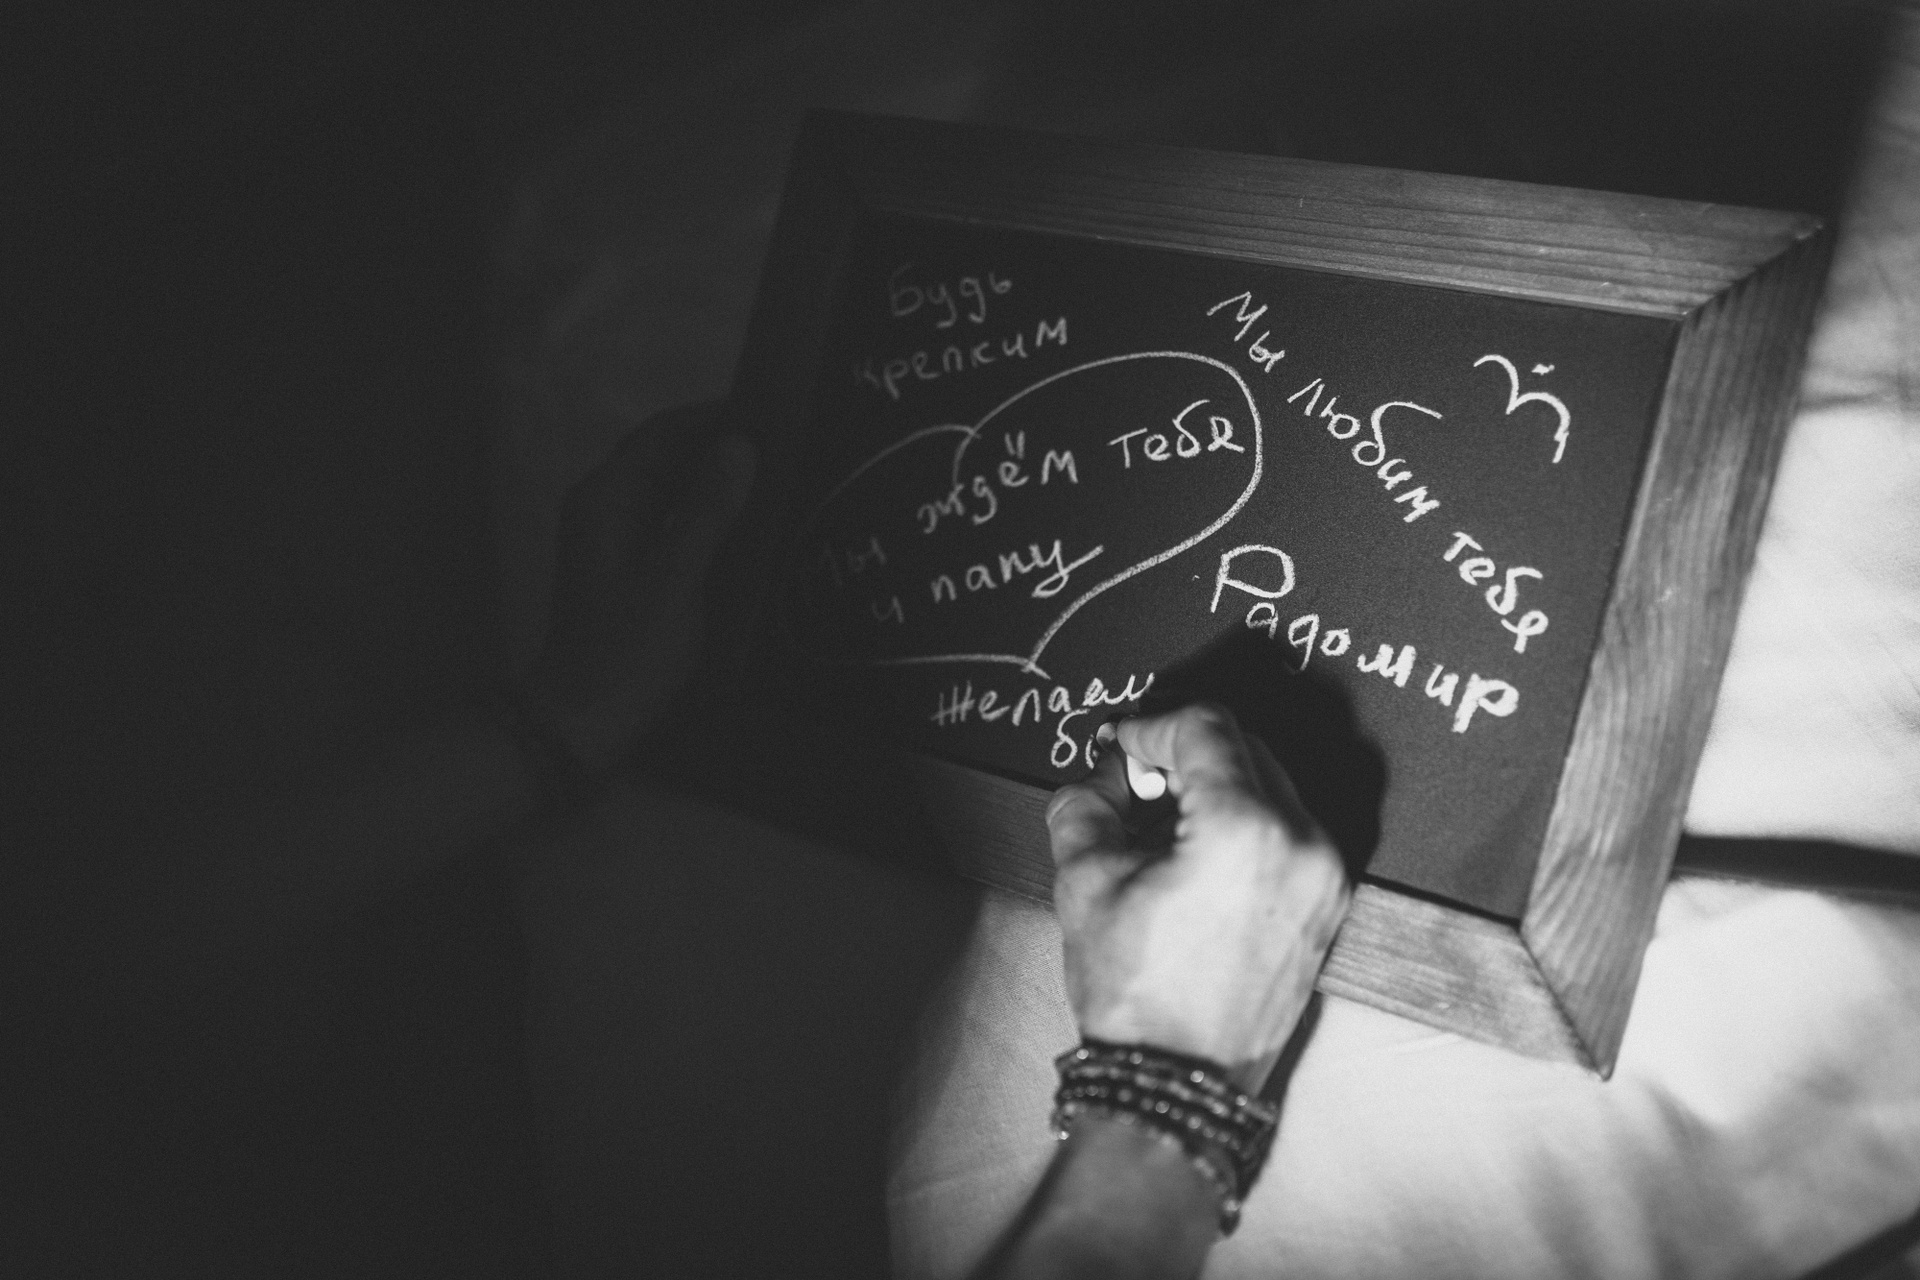 Будь
крепким
Мы любим тебя
ждём тебя
и папу
Радомир
Желаем